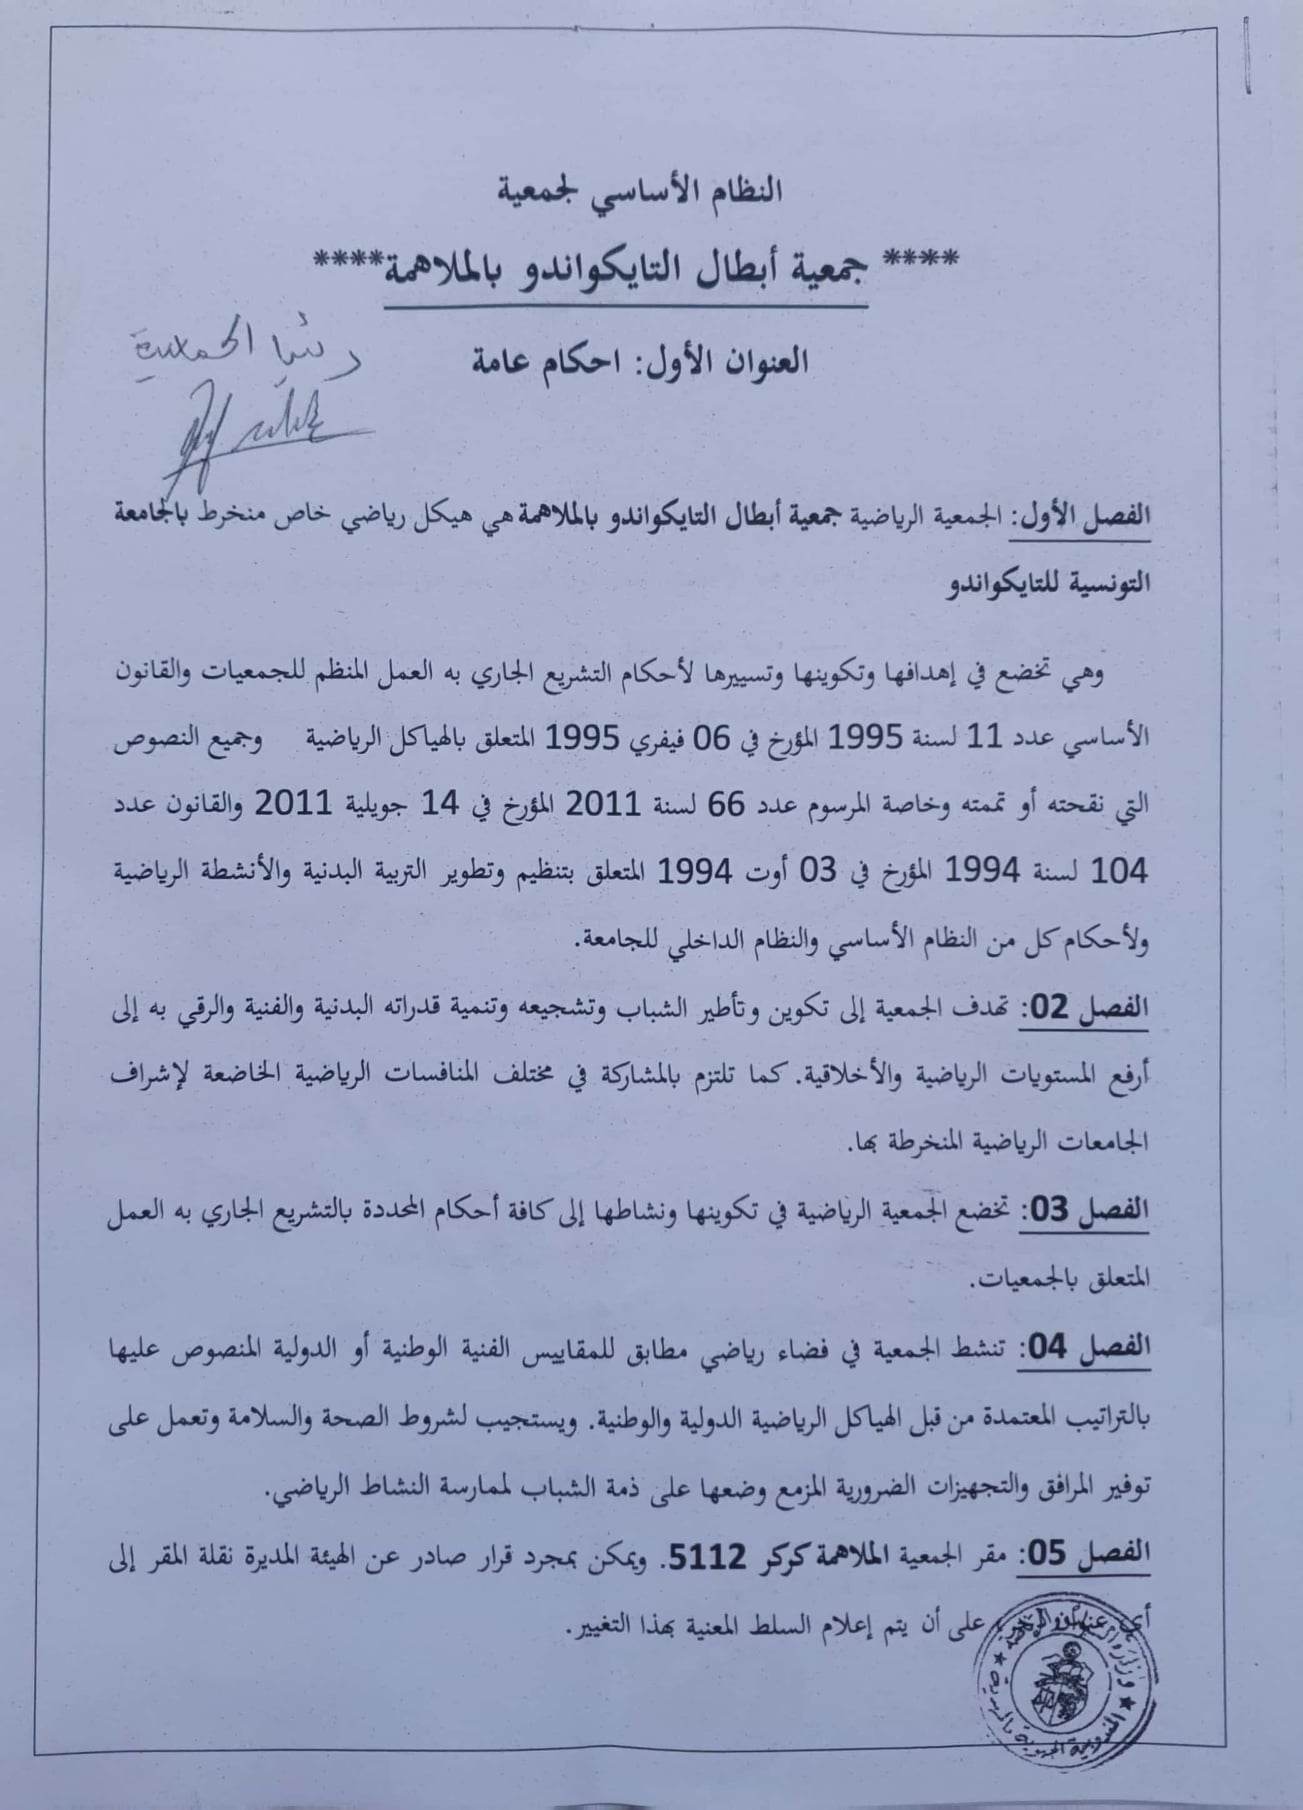 النظام الأساسي لجمعية
**** جمعية أبطال التايكواندو بالملاهمة****
العنوان الأول: احكام عامة
الفصل الأول: الجمعية الرياضية جمعية أبطال التايكواندو بالملاهمة هي هيكل رياضي خاص منخرط بالجامعة
التونسية للتايكواندو
وهي تخضع في إهدافها وتكوينها وتسييرها لأحكام التشريع الجاري به العمل المنظم للجمعيات والقانون
الأساسي عدد 11 لسنة 1995 المؤرخ في 06 فيفري 1995 المتعلق بالهياكل الرياضية وجميع النصوص
التي نقحته أو تممته وخاصة المرسوم عدد 66 لسنة 2011 المؤرخ في 14 جويلية 2011 والقانون عدد
104 لسنة 1994 المؤرخ في 03 أوت 1994 المتعلق بتنظيم وتطوير التربية البدنية والأنشطة الرياضية
ولأحكام كل من النظام الأساسي والنظام الداخلي للجامعة.
الفصل 02: تهدف الجمعية إلى تكوين وتأطير الشباب وتشجيعه وتنمية قدراته البدنية والفنية والرقي به إلى
أرفع المستويات الرياضية والأخلاقية. كما تلتزم بالمشاركة في مختلف المنافسات الرياضية الخاضعة لإشراف
الجامعات الرياضية المنخرطة بها.
الفصل 03: تخضع الجمعية الرياضية في تكوينها ونشاطها إلى كافة أحكام المحددة بالتشريع الجاري به العمل
المتعلق بالجمعيات.
الفصل 04: تنشط الجمعية في فضاء رياضي مطابق للمقاييس الفنية الوطنية أو الدولية المنصوص عليها
بالتراتيب المعتمدة من قبل الهياكل الرياضية الدولية والوطنية. ويستجيب لشروط الصحة والسلامة وتعمل على
توفير المرافق والتجهيزات الضرورية المزمع وضعها على ذمة الشباب لممارسة النشاط الرياضي.
الفصل 05: مقر الجمعية الملاهمة كركر 5112. ويمكن بمجرد قرار صادر عن الهيئة المديرة نقلة المقر إلى
أي عنوان على أن يتم إعلام السلط المعنية بهذا التغيير.
المندوبية الجهوية بالمهدية